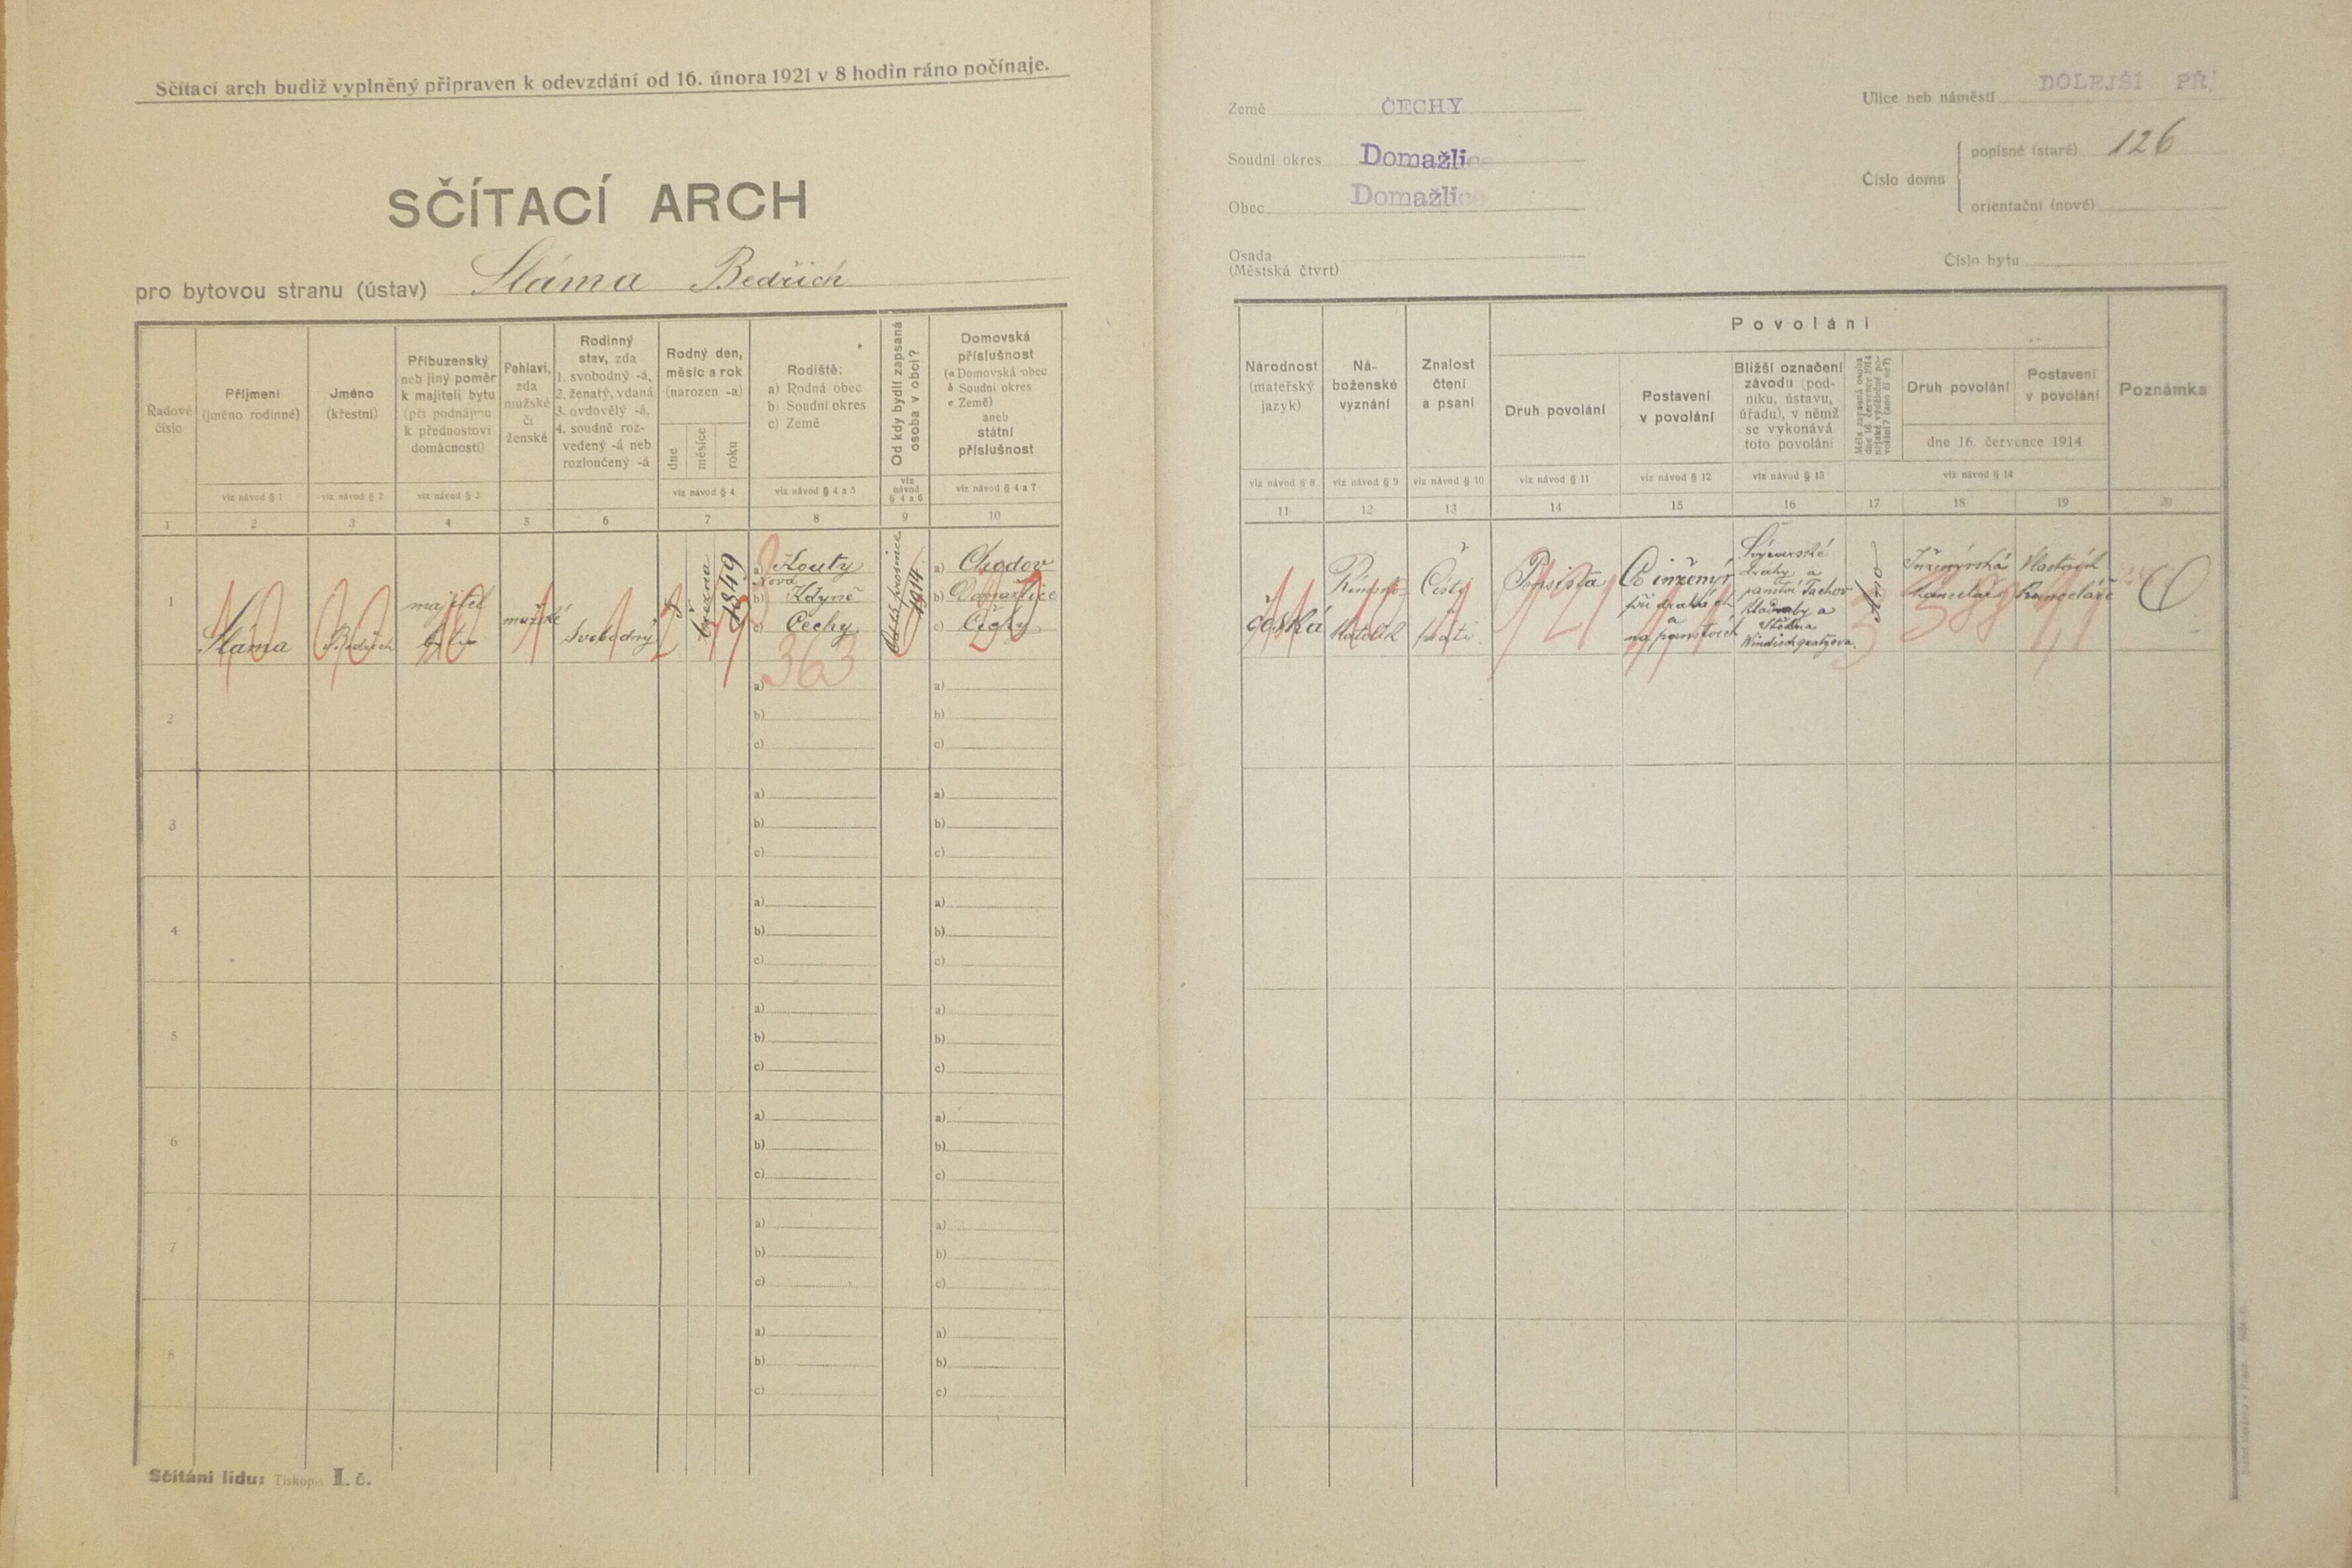 Sčítací arch budiž vyplněný připraven k odevzdání od 16. února 1921 v 8 hodin ráno počínaje.
SČÍTACÍ ARCH
pro bytovou stranu (ústav) Sláma Bedřich
Země ČECHY
Soudní okres Domažlice
Obec Domažlice
Osada
(Městská čtvrt)
Ulice neb náměstí DOLEJŠÍ PŘ
Číslo domu
popisné (staré) 126
orientační (nové)
Číslo bytu
Řadové číslo
Příjmení
(jméno rodinné)
Jméno
(křestní)
Příbuzenský
neb jiný poměr
k majiteli bytu
(při podnájmu
k přednostovi
domácnosti)
Pohlaví,
zda
mužské
či
ženské
Rodinný
stav, zda
1. svobodný -á,
2. ženatý, vdaná
3. ovdovělý -á,
4. soudně roz-
vedený -á neb
rozloučený -á
Rodný den,
měsíc a rok
(narozen -a)
dne
měsíce
roku
Rodiště:
a) Rodná obec
b) Soudní okres
c) Země
Od kdy bydlí zapsaná
osoba v obci?
Domovská
příslušnost
(a Domovská obec
b Soudní okres
c Země)
aneb
státní
příslušnost
viz návod § 1
viz návod § 2
viz návod § 3
viz návod § 4
viz návod § 4 a 5
viz návod § 4 a 6
viz návod § 4 a 7
1 2 3 4 5 6 7 8 9 10
Národnost
(mateřský
jazyk)
Ná-
boženské
vyznání
Znalost
čtení
a psaní
Povolání
Druh povolání
Postavení
v povolání
Bližší označení
závodu (pod-
niku, ústavu,
úřadu), v němž
se vykonává
toto povolání
Měla zapsaná osoba
dne 16. července 1914
nějaké výdělečné po-
volání? (ano či ne?)
Druh povolání
Postavení
v povolání
dne 16. července 1914
Poznámka
viz návod § 8
viz návod § 9
viz návod § 10
viz návod § 11
viz návod § 12
viz návod § 13
viz návod § 14
11 12 13 14 15 16 17 18 19 20
1
Sláma
Bedřich
majitel
bytu
mužské
svobodný
března
1849
a) Kouty
b) Nová Kdyně
c) Čechy
363
prosince
1914
a) Chodov
b) Domažlice
c) Čechy
česká
Římsko
katolík
Čísti
psáti
Pensista
inženýr
při drahách
a
na panstvích
dráhy a
panství Tachov
Kladruby a
Windischgraetzova.
Ano
Inženýrská
kancelář
588
Vlastník
kanceláře
2
a)
b)
c)
a)
b)
c)
3
a)
b)
c)
a)
b)
c)
4
a)
b)
c)
a)
b)
c)
5
a)
b)
c)
a)
b)
c)
6
a)
b)
c)
a)
b)
c)
7
a)
b)
c)
a)
b)
c)
8
a)
b)
c)
a)
b)
c)
Sčítání lidu: Tiskopis II. č.